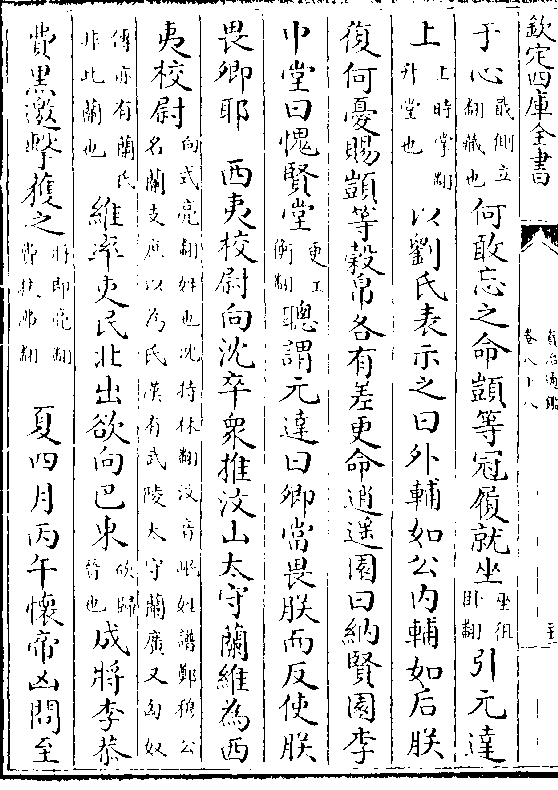 欽定四庫全書
資治通鑑
卷八十八
于心戢側立翻藏也何敢忘之命顗等冠履就坐坐徂卧翻引元達
上上時掌翻升堂也以劉氏表示之曰外輔如公内輔如后朕
復何憂賜顗等穀帛各有差更命逍遥園曰納賢園李
中堂曰愧賢堂更工衡翻聰謂元達曰卿當畏朕而反使朕
畏卿耶　西夷校尉向沈卒衆推汶山太守蘭維為西
夷校尉向式亮翻姓也沈持林翻汶音岷姓譜鄭穆公名蘭支庶以為氏漢有武陵太守蘭廣又匈奴
傳亦有蘭氏非此蘭也維率吏民北出欲向巴東欲歸晉也成將李恭
費黑邀擊獲之將即亮翻費扶沸翻　夏四月丙午懷帝凶問至